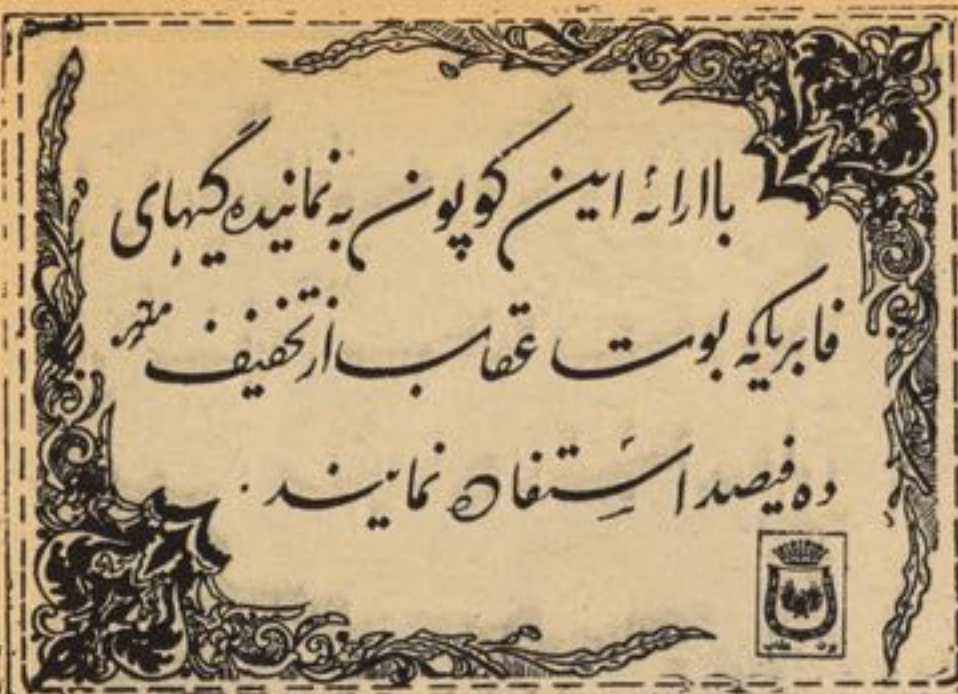 با ارائۀ این کوپون به نمایندهگیهای
فابریکه بوت عقاب از تخفیف
ده فیصد استفاده نمایند.
بوت عقاب